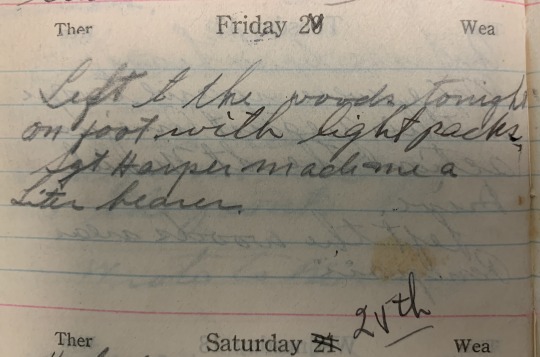 Ther Friday 20 Wea
Left the woods tonight
on foot with light packs,
Sgt Harper made me a
Liter bearer.
25th
Ther Saturday 21 Wea